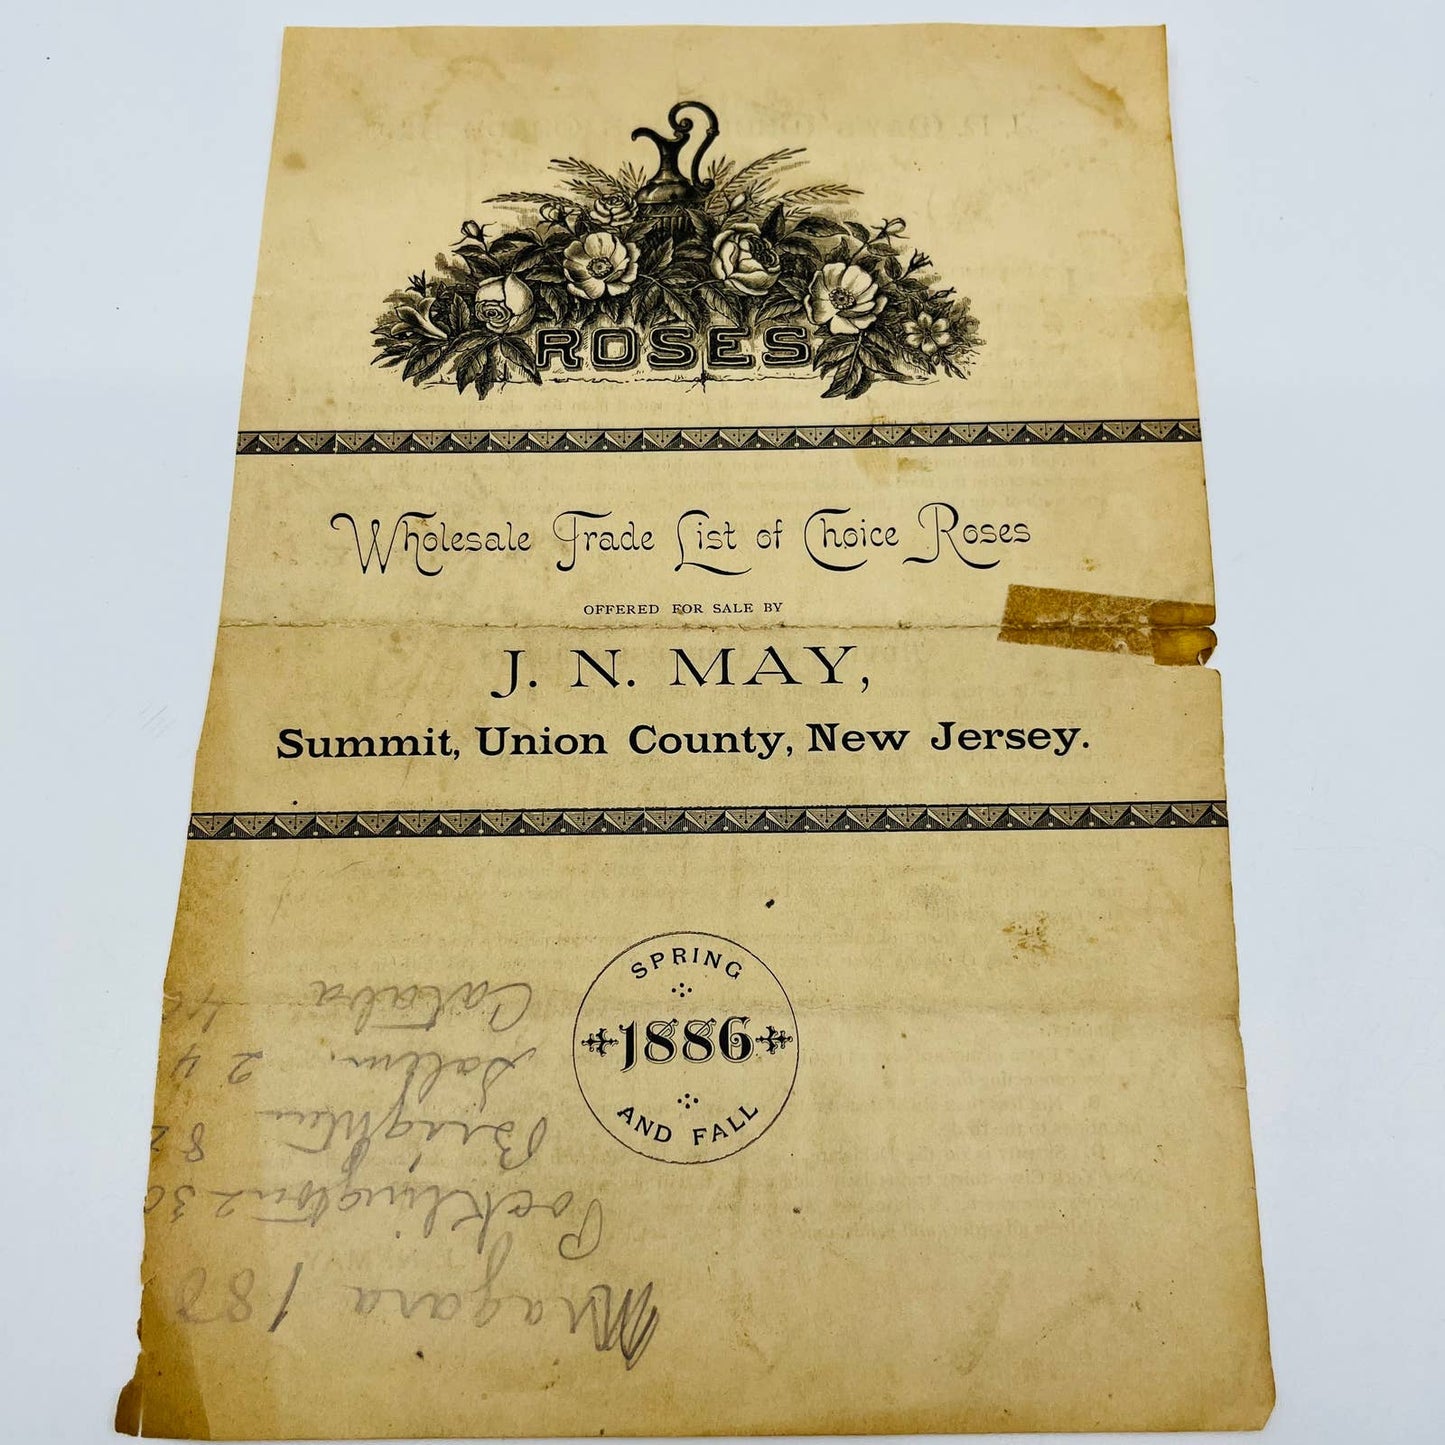 ROSES
Wholesale Trade List of Choice Roses
OFFERED FOR SALE BY
J. N. MAY,
Summit, Union County, New Jersey.
SPRING
1886
AND FALL
Niagara 188
Pocklington 230
Brighton 82
Salem. 24
Catawba